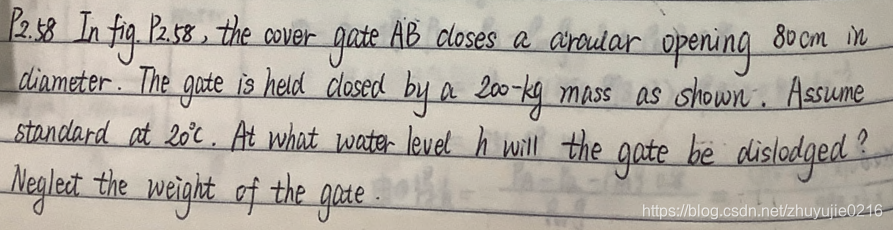 P2.58 In fig. P2.58, the cover gate AB closes a circular opening 80cm in
diameter. The gate is held closed by a 200-kg mass as shown. Assume
standard at 20°c. At what water level h will the gate be dislodged?
Neglect the weight of the gate.
https://blog.csdn.net/zhuyujie0216